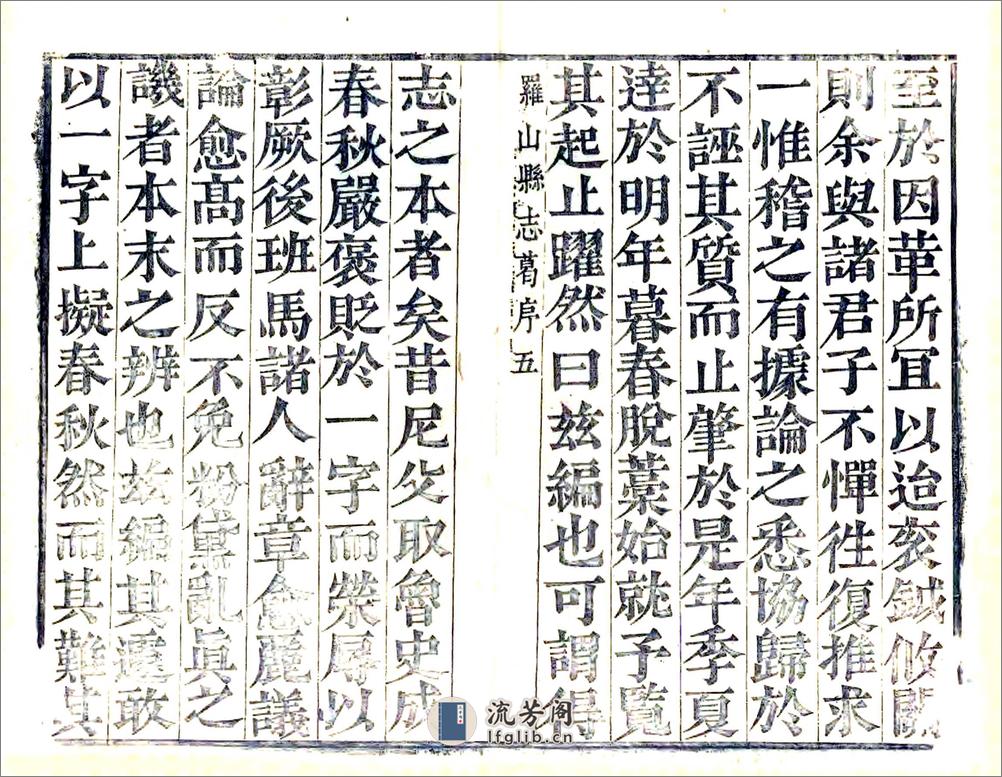 至於因革所冝以迨衮鉞攸關
則余與諸君子不憚徃復推求
一惟稽之有據論之悉協歸於
不誣其質而止肇於是年季夏
逹於明年暮春脫藁始就予覧
其起止躍然曰兹編也可謂得
羅山縣志 葛序 五
志之本者矣昔尼父取魯史成
春秋嚴褒貶於一字而榮辱以
彰厥後班馬諸人辭章愈麗議
論愈髙而反不免粉黛亂眞之
譏者本末之辨也兹編其遽敢
以一字上擬春秋然而其難其
流芳阁
lfglib.cn